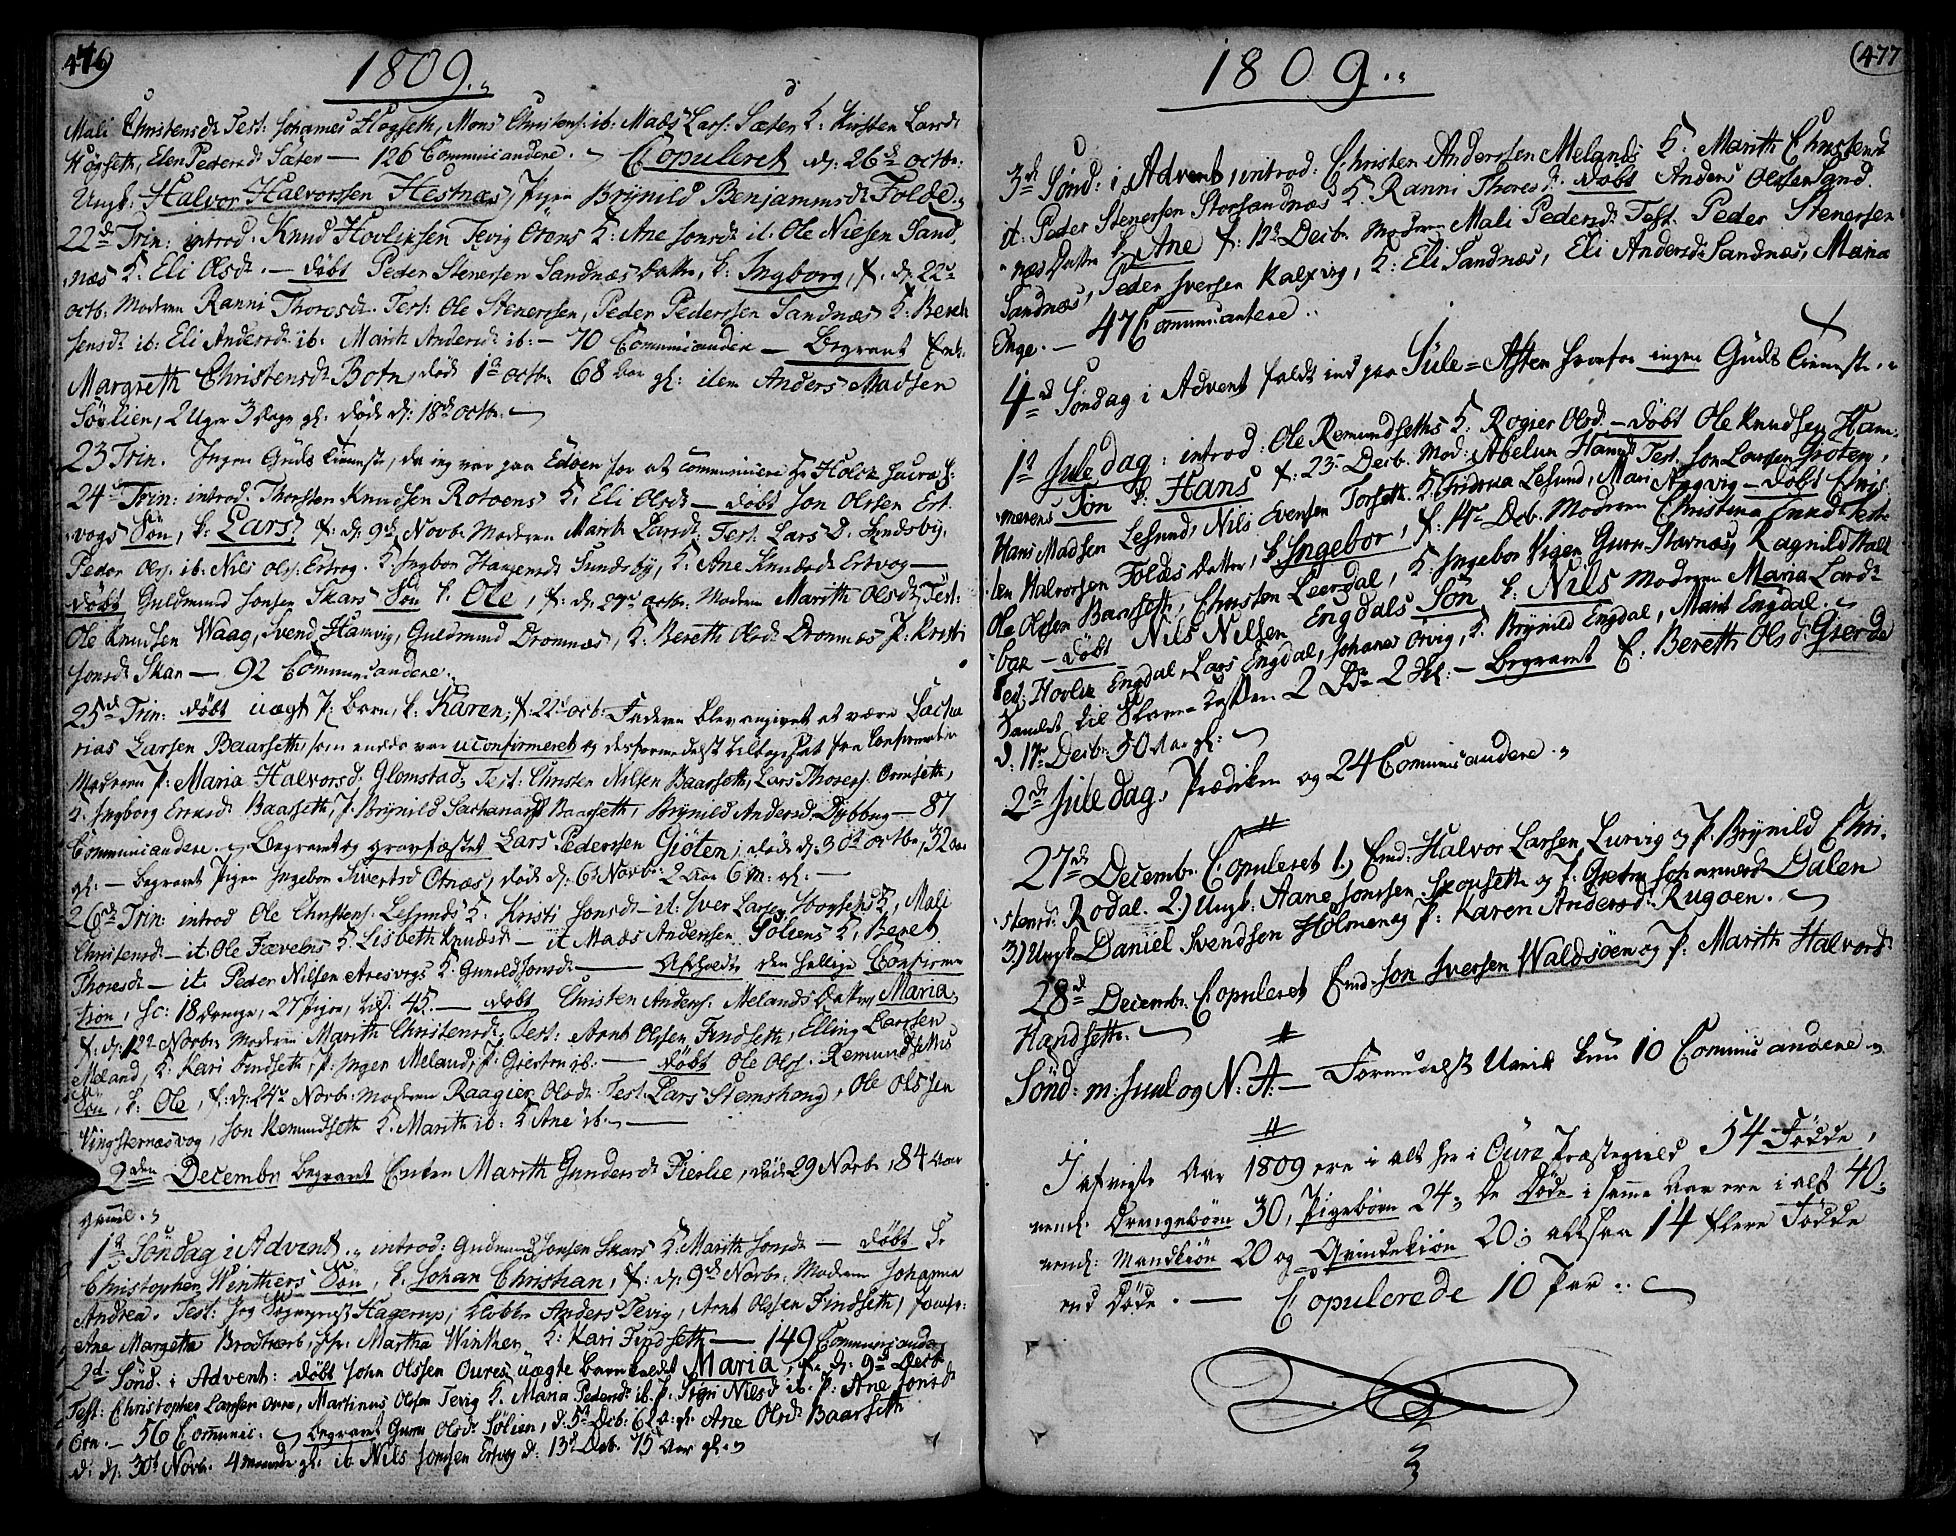 476
1809.
Mali Christensd. Test: Johannes Høgseth, Mons Christens. ib: Mads Lars: Sæter K: Kirsten Larsd:
Høgseth, Elen Pedersd: Sæter — 126 Communicandere. Copuleret d: 26de octbr:
Ungk: Halvor Halvorssen Hestnæs, Pigen Brynild Benjaminsd: Folde.
22de Trin: introd: Knud Hovliksen Tevig Orens K: Ane Jonsd: it: Ole Nielsen Sand
næs K: Eli Olsd. — døbt Peder Stenersen Sandnæs Datter, k: Ingborg, f. d: 22de
octb: Moderen Ranni Thoresd. Test: Ole Stenerssen, Peder Pederssen Sandnæs K: Bereth
Jensd: ib: Eli Andersd: ib: Marith Andersd: ib: — 70 Communicandere — Begravet Enke
Margreth Christensd: Botn, død 1de octbr. 68 Aar gl: item Anders Madsen
Sølien, 2 Uger 3 Dage gl: døde d: 18de octbr. —
23 Trin. Ingen Guds Tieneste, da jeg var paa Edøen for at communicere Hr Holck
24de Trin: introd: Thorsten Knudsen Rotvens K: Eli Olsd — døbt Jon Olssen Ert
vogs Søn, k: Lars, f: d: 9de Novb: Moderen Marith Larsd: Test: Lars D. Sundsby,
Peder Ols: ib: Nils Ols: Ertvog. K: Ingbor Hansensd: Sundsby, K: Ane Knudsd: Ertvog —
døbt Guldmund Jonsen Skars Søn k: Ole, f: d: 27de octbr. Moderen Marith Olsd: Test:
Ole Knudsen Waag, Svend Hamvig, Guldmund Dromnæs, K: Bereth Olsd: Dromnæs P: Kristi
Jonsd: Skar — 92 Communicandere.
25de Trin: døbt uægt P: Barn, k: Karen, f: 22de octb: Faderen blev angivet at være Zacha
rias Larsen Baarseth, som endda var uconfirmeret og desformedelst tilbageset fra Confirmation
Moderen P: Maria Halvorsd: Glomstad, Test: Christen Nilsen Baarseth, Lars Thores: Ormseth,
K: Ingborg Ericsd: Baarseth, P: Brynild Zachariasd: Baarseth, Brynild Andersd: Dybbug — 87
Communicandere. Begravet og gravfæstet Lars Pederssen Giøten, døde d: 30te octbr, 32 Aar
gl: — Begravet Pigen Ingebor Sivertsd Otnæs, død d: 6te Novb: 2 Aar 6 M: gl: —
26de Trin: introd Ole Christens: Lesunds K: Kristi Jonsd — it: Iver Larsen K: Mali
Christensd — it: Ole Fævelens K: Lisbeth Knudsd: — it Mads Anderssen Søliens K: Beret
Thoresd: — it: Peder Nilsen Aresvigs K: Gunild Jonsd: — Afholdtes den hellige Confirma
tion, sc: 18 Drenge, 27 Piger, tils: 45. — døbt Christen Anders: Melands Datter Maria,
f: d: 12te Novbr. Moderen Marith Christensd: Test: Arnt Olssen Findseth, Elling Larssen
Meland, K: Kari Findseth, P: Ingen Meland, P: Giertru ib. — døbt Ole Ols: Remundseths
Søn, k: Ole, f: d: 24de Novbr. Moderen Raagier Olsd: Test: Lars Stemshoug, Ole Olssen
Vingsternæsvog, Jon Remundseth K: Marith ib: K Ane ib. —
2den Decembr Begravet Enken Marith Gundersd: Fierlie, døde 29 Novbr, 84 Aar
gamel.
1ste Søndag i Advent. introd: Gudmund Jonsen Skars K: Marith Jonsd: — døbt Sr
Christopher Winthers Søn, k: Johan Christian, f: d: 9de Novbr. Moderen Johanna
Andrea. Test: Jeg Sognepræst Hagerup, Klokker Anders Tevig, Arnt Olssen Findseth, Jomfr:
Ane Margretta Brodtkorb, Jfr: Martha Winther, K: Kari Findseth — 149 Communicandere
2de Sønd: i Advent: døbt John Olssen Oures uægte Barn kaldet Maria, f: d: 9de Decbr
Test: Christopher Larssen Oure, Martinus Olsen Tevig K: Maria Pedersd: ib: P: Signi Nilsd ib. P: Ane Jonsd:
Orn. — 56 Communic. Begravet Guru Olsd: Sølien, d: 5te Decb: 62 A: gl: Ane Olsd: Baarseth
d: d: 30te Novbr. 4 Maaneder gl: ib Nils Jonssen Ertvog d: 13de Decb. 75 Aar gl:
477
1809.
3de Sønd: i Advent introd: Christen Anderssen Melands K: Marith Christensd
it: Peder Stenersen Storsandnæs K: Ranni Thoresd. døbt Anders Olssen Sand
næs Datter k: Ane f: 12te Decbr Moderen Mali Pedersd: Test: Peder Stenersen
Sandnæs, Peder Iversen Kalsvig, K: Eli Sandnæs, Eli Andersd: Sandnæs, Maria
Enge. — 47 Communicantere.
4de Søndag i Advent faldt ind paa Jule=Aften hvorfor ingen Guds Tieneste.
1ste Juledag: introd: Ole Remundseths K: Rogier Olsd. — døbt Ole Knudsen Ham
merens Søn k: Hans f: 23de Decbr. Mod: Abelun Hansd Test. Jon Larsen Gioten,
Hans Madsen Lesund, Nils Evensen Torseth. K: Fridrica Lesund, Mari Aagvig — døbt Chris
ten Halvorsen Foldes Datter, k: Ingebor, f. 14de Dec. Moderen Christina Test:
Ole Olssen Baarseth, Christen Leerdal, K: Ingebor Vigen Guru Starnæs, Ragnild Hald
bak — døbt Nils Nilsen Engdals Søn k: Nils Moderen Maria Larsd:
Test: Hovlik Engdal, Lars Engdal, Johanes Orvig, K: Brynild Engdal, Marit Engdal.
Samlet til 2 Rdr 2 Sk: — Begravet E: Bereth Olsd: Gierde
d: 17de Decbr. 50 Aar gl:
2den Juledag, Prædiken og 24 Communicandere.
27de Decembr. Copuleret 1.) Enkd: Halvor Larsen Lurvig og P: Brynild Chri
stensd: Rodal. 2.) Ungk: Aane Jonssen og P: Gretu Johannesd: Dalen
3.) Ungk. Daniel Svendsen Holmen og P: Karen Andersd: Rugøen.
28de Decembr. Copuleret Enkd: Jon Iversen Waldsøen og P: Marith Halvorsd:
Handseth.
Sønd: m: Juul og N: A: — Formedelst Uveir kun 10 Communicandere.
I afvigte Aar 1809 ere i alt her i Oure Præstegield 54 Fødde,
neml: Drengebørn 30, Pigebørn 24; De Døde i samme Aar ere i alt 40;
neml: Mandkiøn 20 og Qvindekiøn 20; altsaa 14 flere Fødde
end Døde. — Copulerede 10 Par.